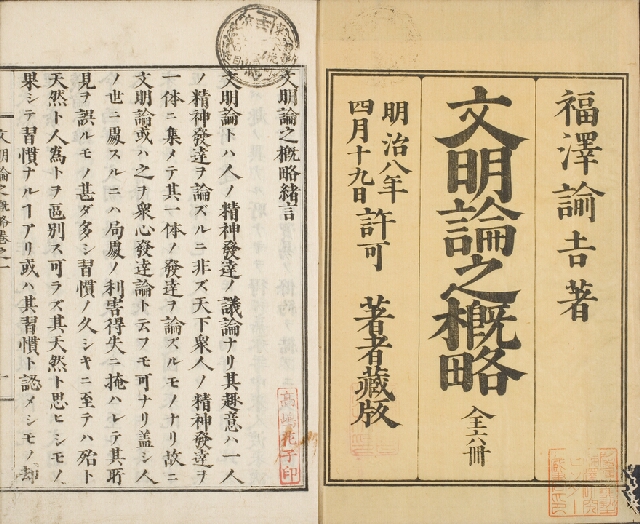 福澤諭吉著
文明論之概略 全六冊
明治八年
四月十九日 許可 著者藏版
文明論之概略緒言
文明論トハ人ノ精神發達ノ議論ナリ其趣意ハ一人
ノ精神發達ヲ論ズルニ非ズ天下衆人ノ精神發達ヲ
一体ニ集メテ其一体ノ發達ヲ論ズルモノナリ故ニ
文明論或ハ之ヲ衆心發達論ト云フモ可ナリ蓋シ人
ノ世ニ處スルニハ局處ノ利害得失ニ掩ハレテ其所
見ヲ誤ルモノ甚ダ多シ習慣ノ久シキニ至テハ殆ト
天然ト人爲トヲ區別ス可ラズ其天然ト思ヒシモノ
果シテ習慣ナルヿアリ或ハ其習慣ト認メシモノ却
文明論之概略卷之一